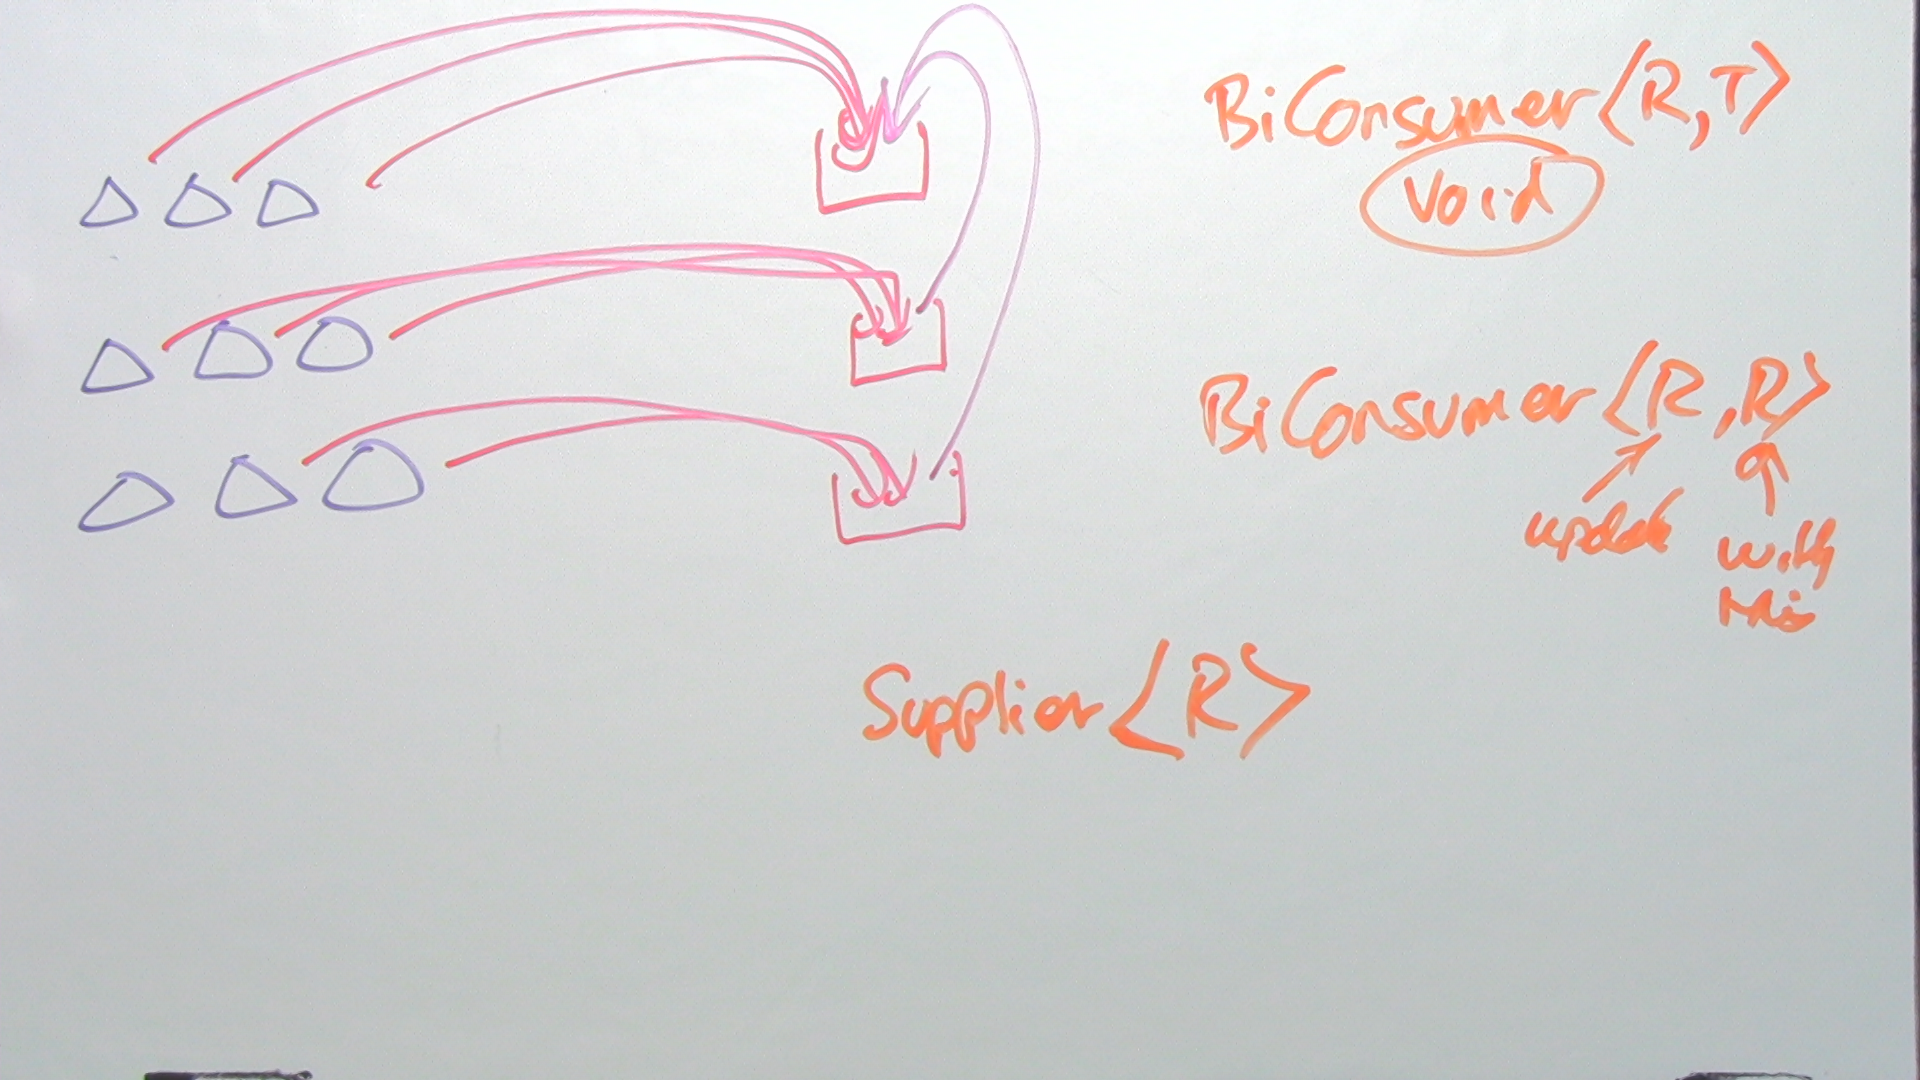 BiConsumer<R,T>
Void
BiConsumer<R,R>
update
with
this
Supplier<R>